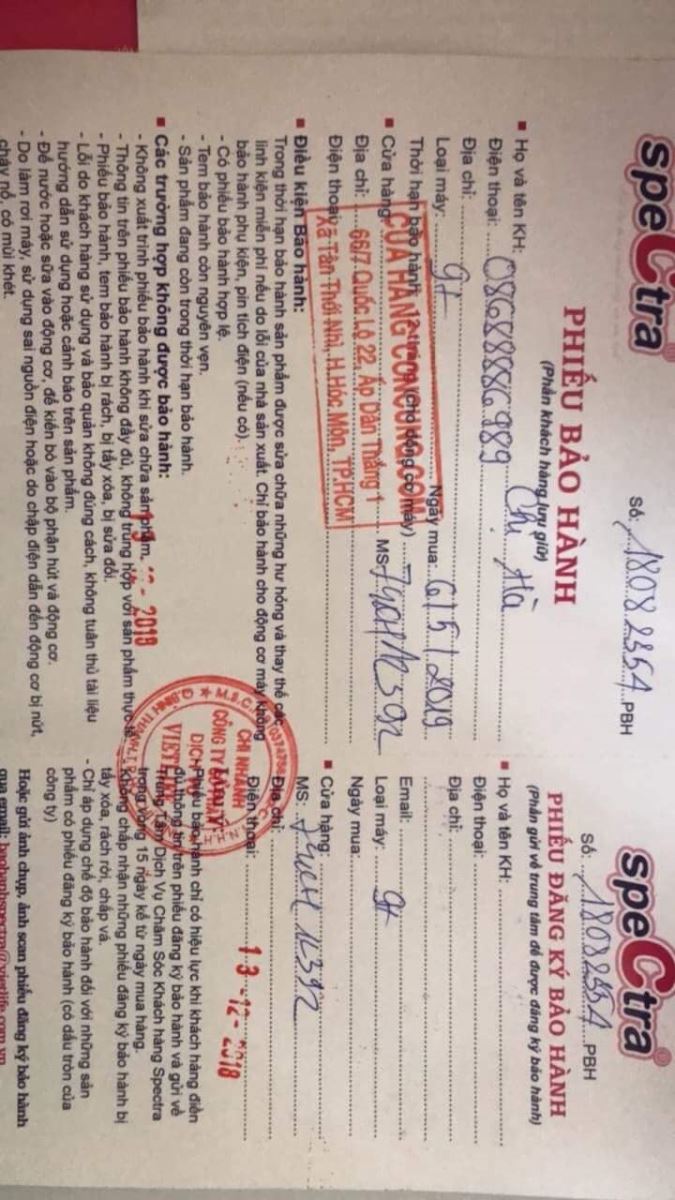 speCtra
Số: 18082354 PBH
PHIẾU BẢO HÀNH
(Phần khách hàng lưu giữ)
Họ và tên KH: Chị Hà
Điện thoại: 0868886989
Địa chỉ:
Loại máy: 9+ Ngày mua: 6/5/2019
Thời hạn bảo hành: 12 tháng (cho động cơ máy)
Cửa hàng: MS:
Địa chỉ:
Điện thoại:
CỬA HÀNG CONCUNG.COM
66/7 Quốc Lộ 22, Ấp Dân Thắng 1
Xã Tân Thới Nhì, H.Hóc Môn, TP.HCM
Điều kiện Bảo hành:
Trong thời hạn bảo hành sản phẩm được sửa chữa những hư hỏng và thay thế các
linh kiện miễn phí nếu do lỗi của nhà sản xuất. Chỉ bảo hành cho động cơ máy không
bảo hành phụ kiện, pin tích điện (nếu có).
- Có phiếu bảo hành hợp lệ.
- Tem bảo hành còn nguyên vẹn.
- Sản phẩm đang còn trong thời hạn bảo hành.
Các trường hợp không được bảo hành:
- Không xuất trình phiếu bảo hành khi sửa chữa sản phẩm.
- Thông tin trên phiếu bảo hành không đầy đủ, không trùng hợp với sản phẩm thực tế.
- Phiếu bảo hành, tem bảo hành bị rách, bị tẩy xóa, bị sửa đổi.
- Lỗi do khách hàng sử dụng và bảo quản không đúng cách, không tuân thủ tài liệu
hướng dẫn sử dụng hoặc cảnh báo trên sản phẩm.
- Để nước hoặc sữa vào động cơ, để kiến bò vào bộ phận hút và động cơ.
- Do làm rơi máy, sử dụng sai nguồn điện hoặc do chập điện dẫn đến động cơ bị nứt,
cháy nổ, có mùi khét.
speCtra
Số: 18082354 PBH
PHIẾU ĐĂNG KÝ BẢO HÀNH
(Phần gửi về trung tâm để được đăng ký bảo hành)
Họ và tên KH:
Điện thoại:
Địa chỉ:
Email:
Loại máy: 9+
Ngày mua:
Cửa hàng:
MS:
Địa chỉ:
Điện thoại:
13-12-2018
CHI NHÁNH
CÔNG TY
VIET
Phiếu bảo hành chỉ có hiệu lực khi khách hàng điền
đủ thông tin trên phiếu đăng ký bảo hành và gửi về
Trung Tâm Dịch Vụ Chăm Sóc Khách hàng Spectra
trong vòng 15 ngày kể từ ngày mua hàng.
- Không chấp nhận những phiếu đăng ký bảo hành bị
tẩy xóa, rách rời, chắp vá.
- Chỉ áp dụng chế độ bảo hành đối với những sản
phẩm có phiếu đăng ký bảo hành (có dấu tròn của
công ty)
Hoặc gửi ảnh chụp, ảnh scan phiếu đăng ký bảo hành
qua email: baohanhspectra@vietlife.com.vn